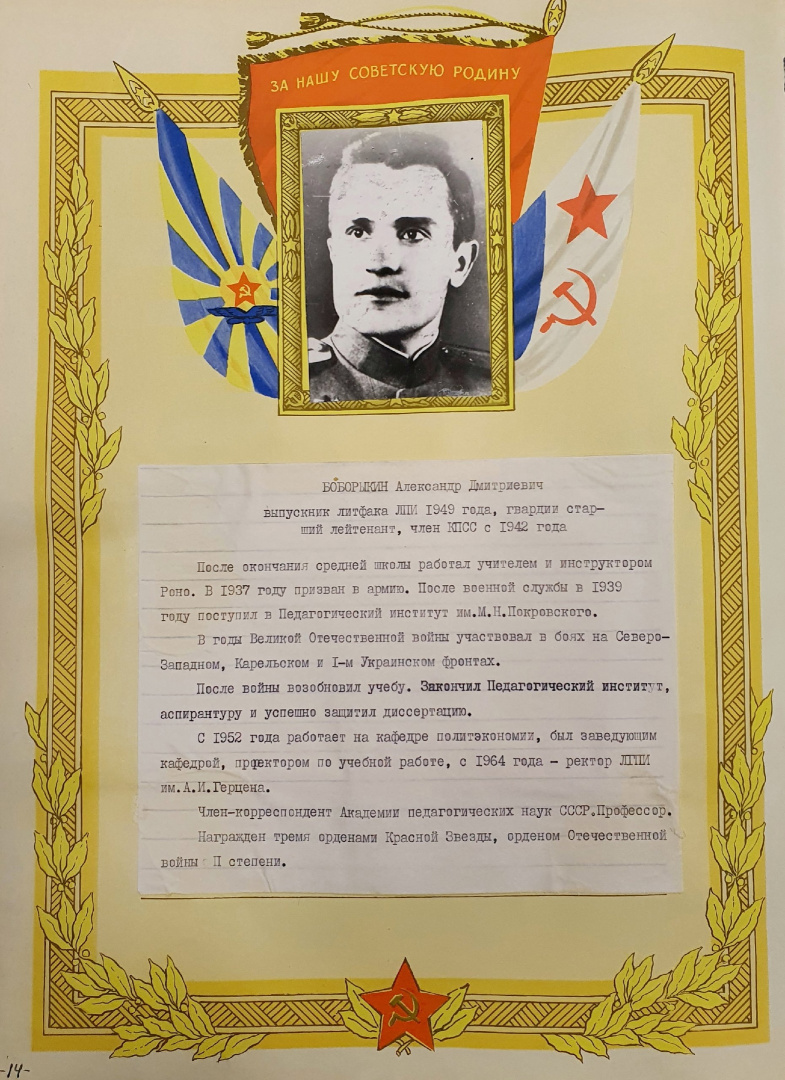 ЗА НАШУ СОВЕТСКУЮ РОДИНУ
БОБОРЫКИН Александр Дмитриевич
выпускник литфака ЛПИ 1949 года, гвардии стар-
ший лейтенант, член КПСС с 1942 года
После окончания средней школы работал учителем и инструктором
Роно. В 1937 году призван в армию. После военной службы в 1939
году поступил в Педагогический институт им.М.Н.Покровского.
В годы Великой Отечественной войны участвовал в боях на Северо-
Западном, Карельском и I-м Украинском фронтах.
После войны возобновил учебу. Закончил Педагогический институт,
аспирантуру и успешно защитил диссертацию.
С 1952 года работает на кафедре политэкономии, был заведующим
кафедрой, проректором по учебной работе, с 1964 года - ректор ЛГПИ
им.А.И.Герцена.
Член-корреспондент Академии педагогических наук СССР.Профессор.
Награжден тремя орденами Красной Звезды, орденом Отечественной
войны II степени.
-14-